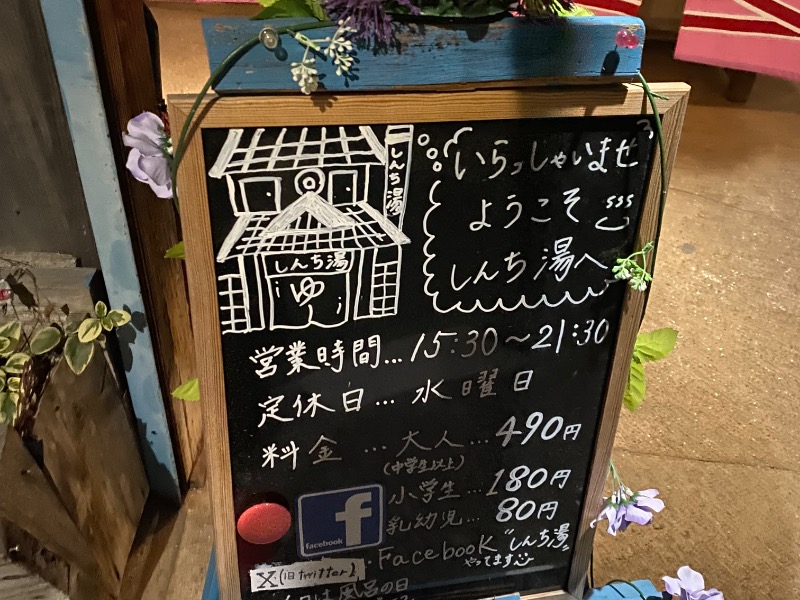 しんち湯
しんち湯
ゆ
いらっしゃいませ
ようこそ
しんち湯へ
営業時間…15:30～21:30
定休日…水曜日
料金…大人…490円
(中学生以上)
小学生…180円
乳幼児…80円
facebook
Facebook "しんち湯"
やってます
X(旧twitter)
は風呂の日